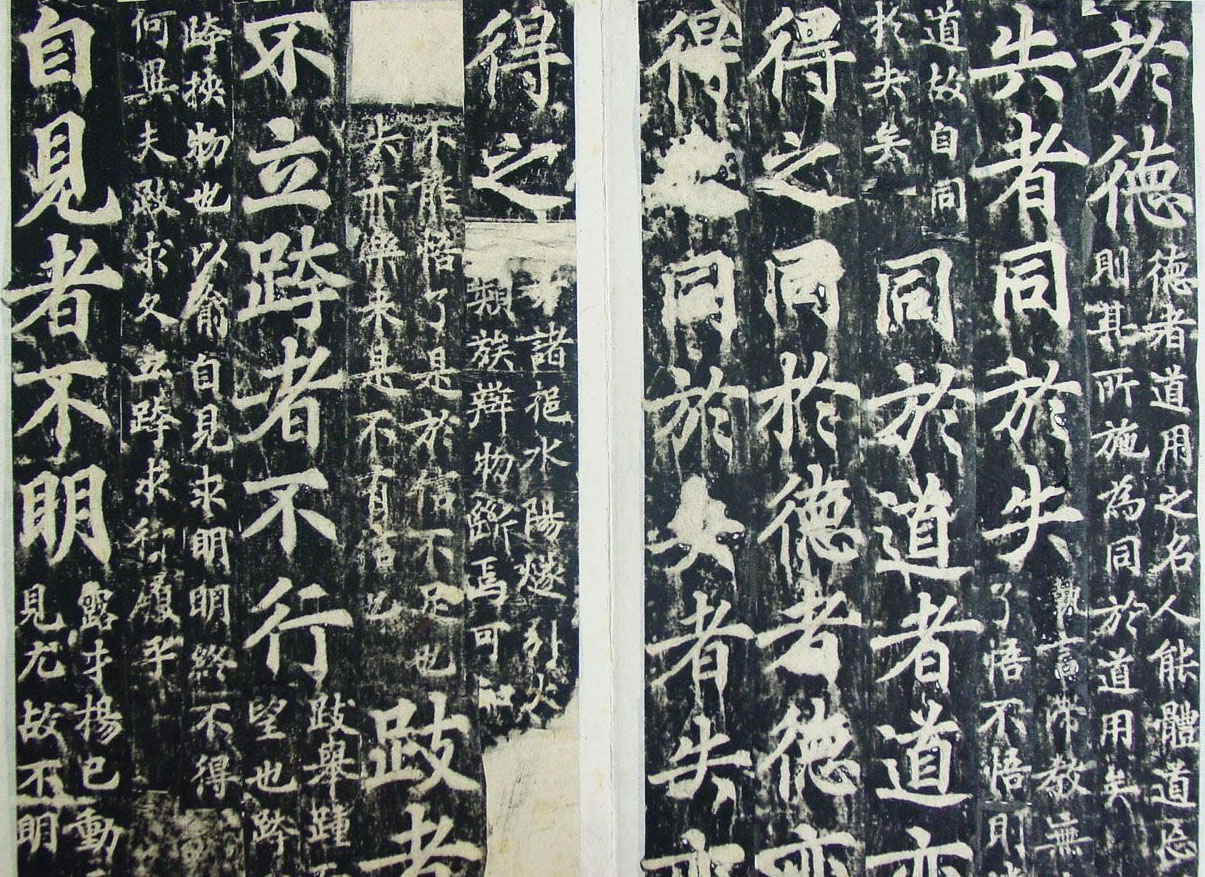 於德
德者道用之名人能體道忘
則其所施為同於道用矣
失者同於失
執言滯教無
了悟不悟則
道故自同
於失矣
同於道者道亦
得之同於德者德亦
得同於失者失亦
得之
諸挹水陽燧引火
類族辯物斷焉可
不能悟了是於信不足也
來是不有
跂者
不立跨者不行
跂舉踵
望也跨
跨挾物也以喻自見求明明終不得
何異夫跂求久立跨求行履乎
自見者不明
露才揚己動
見尤故不明